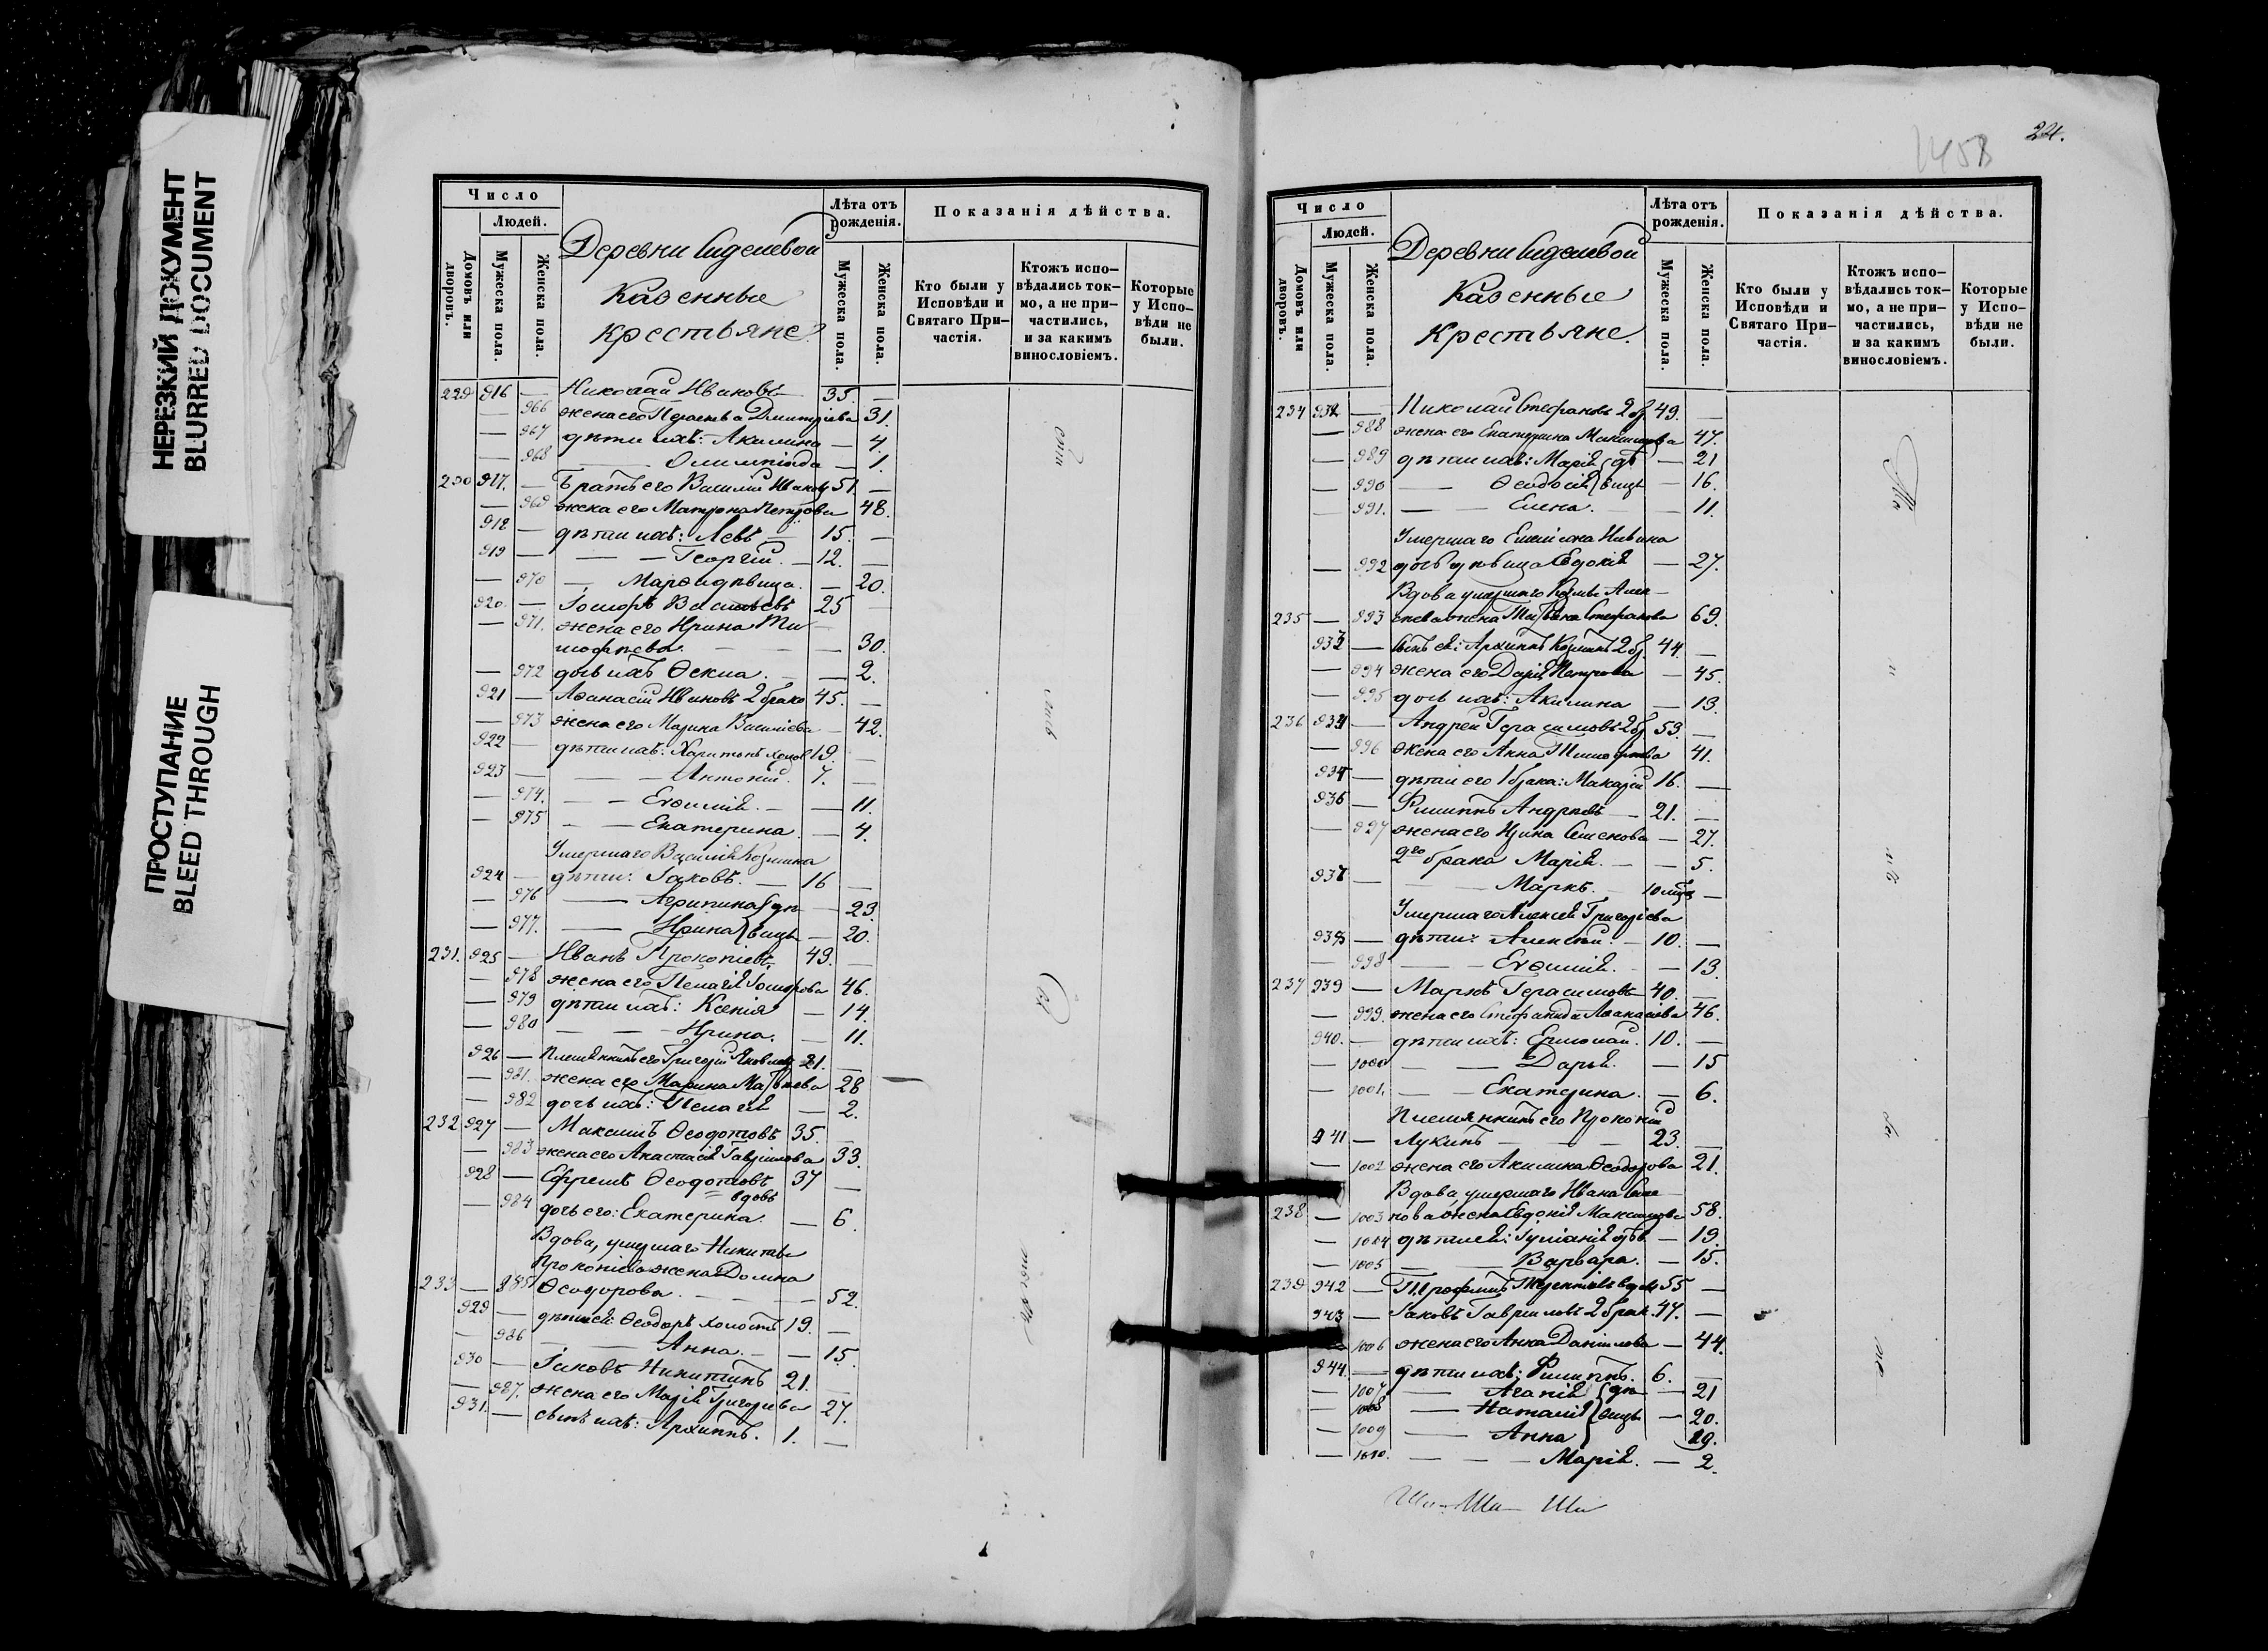 НЕРЕЗКИЙ ДОКУМЕНТ
BLURRED DOCUMENT
ПРОСТУПАНИЕ
BLEED THROUGH
Число
Людей.
Домовъ или дворовъ.
Мужеска пола.
Женска пола.
Деревни
Казенные
крестьяне
Лѣта отъ рожденія.
Мужеска пола.
Женска пола.
Показанія дѣйства.
Кто были у Исповѣди и Святаго При-частія.
Ктожъ испо-вѣдались ток-мо, а не при-частились, и за какимъ винословіемъ.
Которые у Испо-вѣди не были.
229 916 — Николай Ивановъ 35. —
— 966 жена его Дмитріева 31.
— 967 дѣти ихъ: Акилина — 4.
— 968 — Олимпіада — 1.
230 917. — Братъ его Василій Ивановъ 51 —
— 969 жена его Матрона Петрова 48.
918 — дѣти ихъ: Левъ — 15. —
919 — — — Георгій. — 12. —
— 970 — Марѳа дѣвица. — 20.
920. — Васильевъ 25 —
— 971. жена его Ирина Ти-
моѳѣева. — — — 30.
— 972 дочь ихъ Ѳекла. — — 2.
921 — Аѳанасій Ивановъ 2 брака 45. —
— 973 жена его Марина Василіева — 42.
922 — дѣти ихъ: Харитонъ холос 19. —
923 — — — Антоній. 7. —
— 974. — — Евѳимія. — — 11.
— 975 — — Екатерина. — 4.
Умершаго Василія Козмина
924 — дѣти: Іаковъ. — 16 —
— 976 — Агрипина дѣ- — 23.
— 977. — Ирина вицы — 20.
231. 925 — Иванъ Прокопіевъ 49. —
— 978 жена его Пелагія 46.
— 979 дѣти ихъ: Ксенія — 14.
— 980 — — — Ирина. — 11.
926 — Племянникъ его Григорій Яковлевъ 21. —
— 981. жена его Марина Матвѣева 28
— 982 дочь ихъ: Пелагія — 2.
232 927 — Максимъ Ѳеодотовъ 35. —
— 983 жена его Анастасія Гавріилова 33.
928 — Ефремъ Ѳеодотовъ 37 —
вдовъ
— 984 дочь его: Екатерина. — 6.
Вдова, умершаго Никиты
Прокопіева жена Домна
233 — 985 Ѳеодорова. — — — 52.
929 — дѣти ей: Ѳеодоръ холостъ 19. —
— 986 — — Анна. — — 15.
930 — Іаковъ Никитинъ 21. —
— 987. жена его Марія Григорьева 27.
931. — сынъ ихъ: Архиппъ. 1. —
24.
1458
Число
Людей.
Домовъ или дворовъ.
Мужеска пола.
Женска пола.
Деревни
Казенные
Крестьяне.
Лѣта отъ рожденія.
Мужеска пола.
Женска пола.
Показанія дѣйства.
Кто были у Исповѣди и Святаго При-частія.
Ктожъ испо-вѣдались ток-мо, а не при-частились, и за какимъ винословіемъ.
Которые у Испо-вѣди не были.
234 932 — Николай Стефановъ 2 бр. 49. —
— 988 жена его Екатерина Максимова 47.
— 989 дѣти ихъ: Марія дѣ- — 21
— 990 — — Ѳеодосія вицы — 16.
— 991. — — Елена. — — 11.
Умершаго
— 992 дочь дѣвица Евдокія — 27.
Вдова умершаго Козмы Алек-
235 — 993 сѣева жена Татьяна Стефанова 69.
933 — сынъ ея: Архиппъ Козминъ 2 бр. 44. —
— 994 жена его Дарія Петрова — 45.
— 995 дочь ихъ: Акилина — 13.
236 934 — Андрей Герасимовъ 2 бр. 53. —
— 996 жена его Анна Тимоѳѣева 41.
935 — дѣти его 1 брака: Макарій 16. —
936 — Филиппъ Андреевъ — 21. —
— 997 жена его Ирина Семенова — 27.
2го брака Марія. — — 5.
937 — — — Маркъ. — 10 мцвъ —
Умершаго Алексѣя Григорьева
938 — дѣти: Алексѣй. — 10. —
— 998 — — Евѳимія. — — 13.
237 939 — Маркъ Герасимовъ 40. —
— 999. жена его Стефанида Аѳанасіева 46.
940. — дѣти ихъ: Ермолай. 10. —
— 1000 — — Дарья. — 15
— 1001. — — Екатерина. — 6.
Племянникъ его Прокопій
941 — Лукинъ — — — 23. —
— 1002 жена его Акилина Ѳеодорова 21.
Вдова умершаго Ивана Семе-
238 — 1003 нова жена Евдокія Максимова 58.
— 1004 дѣти ей: Іуліанія дѣв. — 19.
— 1005 — — — Варвара. — 15.
239 942 — Трофимъ Терентіевъ вдовъ 55 —
943 — Іаковъ Гавриловъ 2 брак. 47. —
1006 жена его Анна Даніилова — 44.
944. — дѣти ихъ: Филиппъ. 6. —
— 1007 — Агапія дѣ- — 21
— 1008 — Наталія вицы — 20.
— 1009 — Анна 19.
— 1010. — — — Марія. — 2.